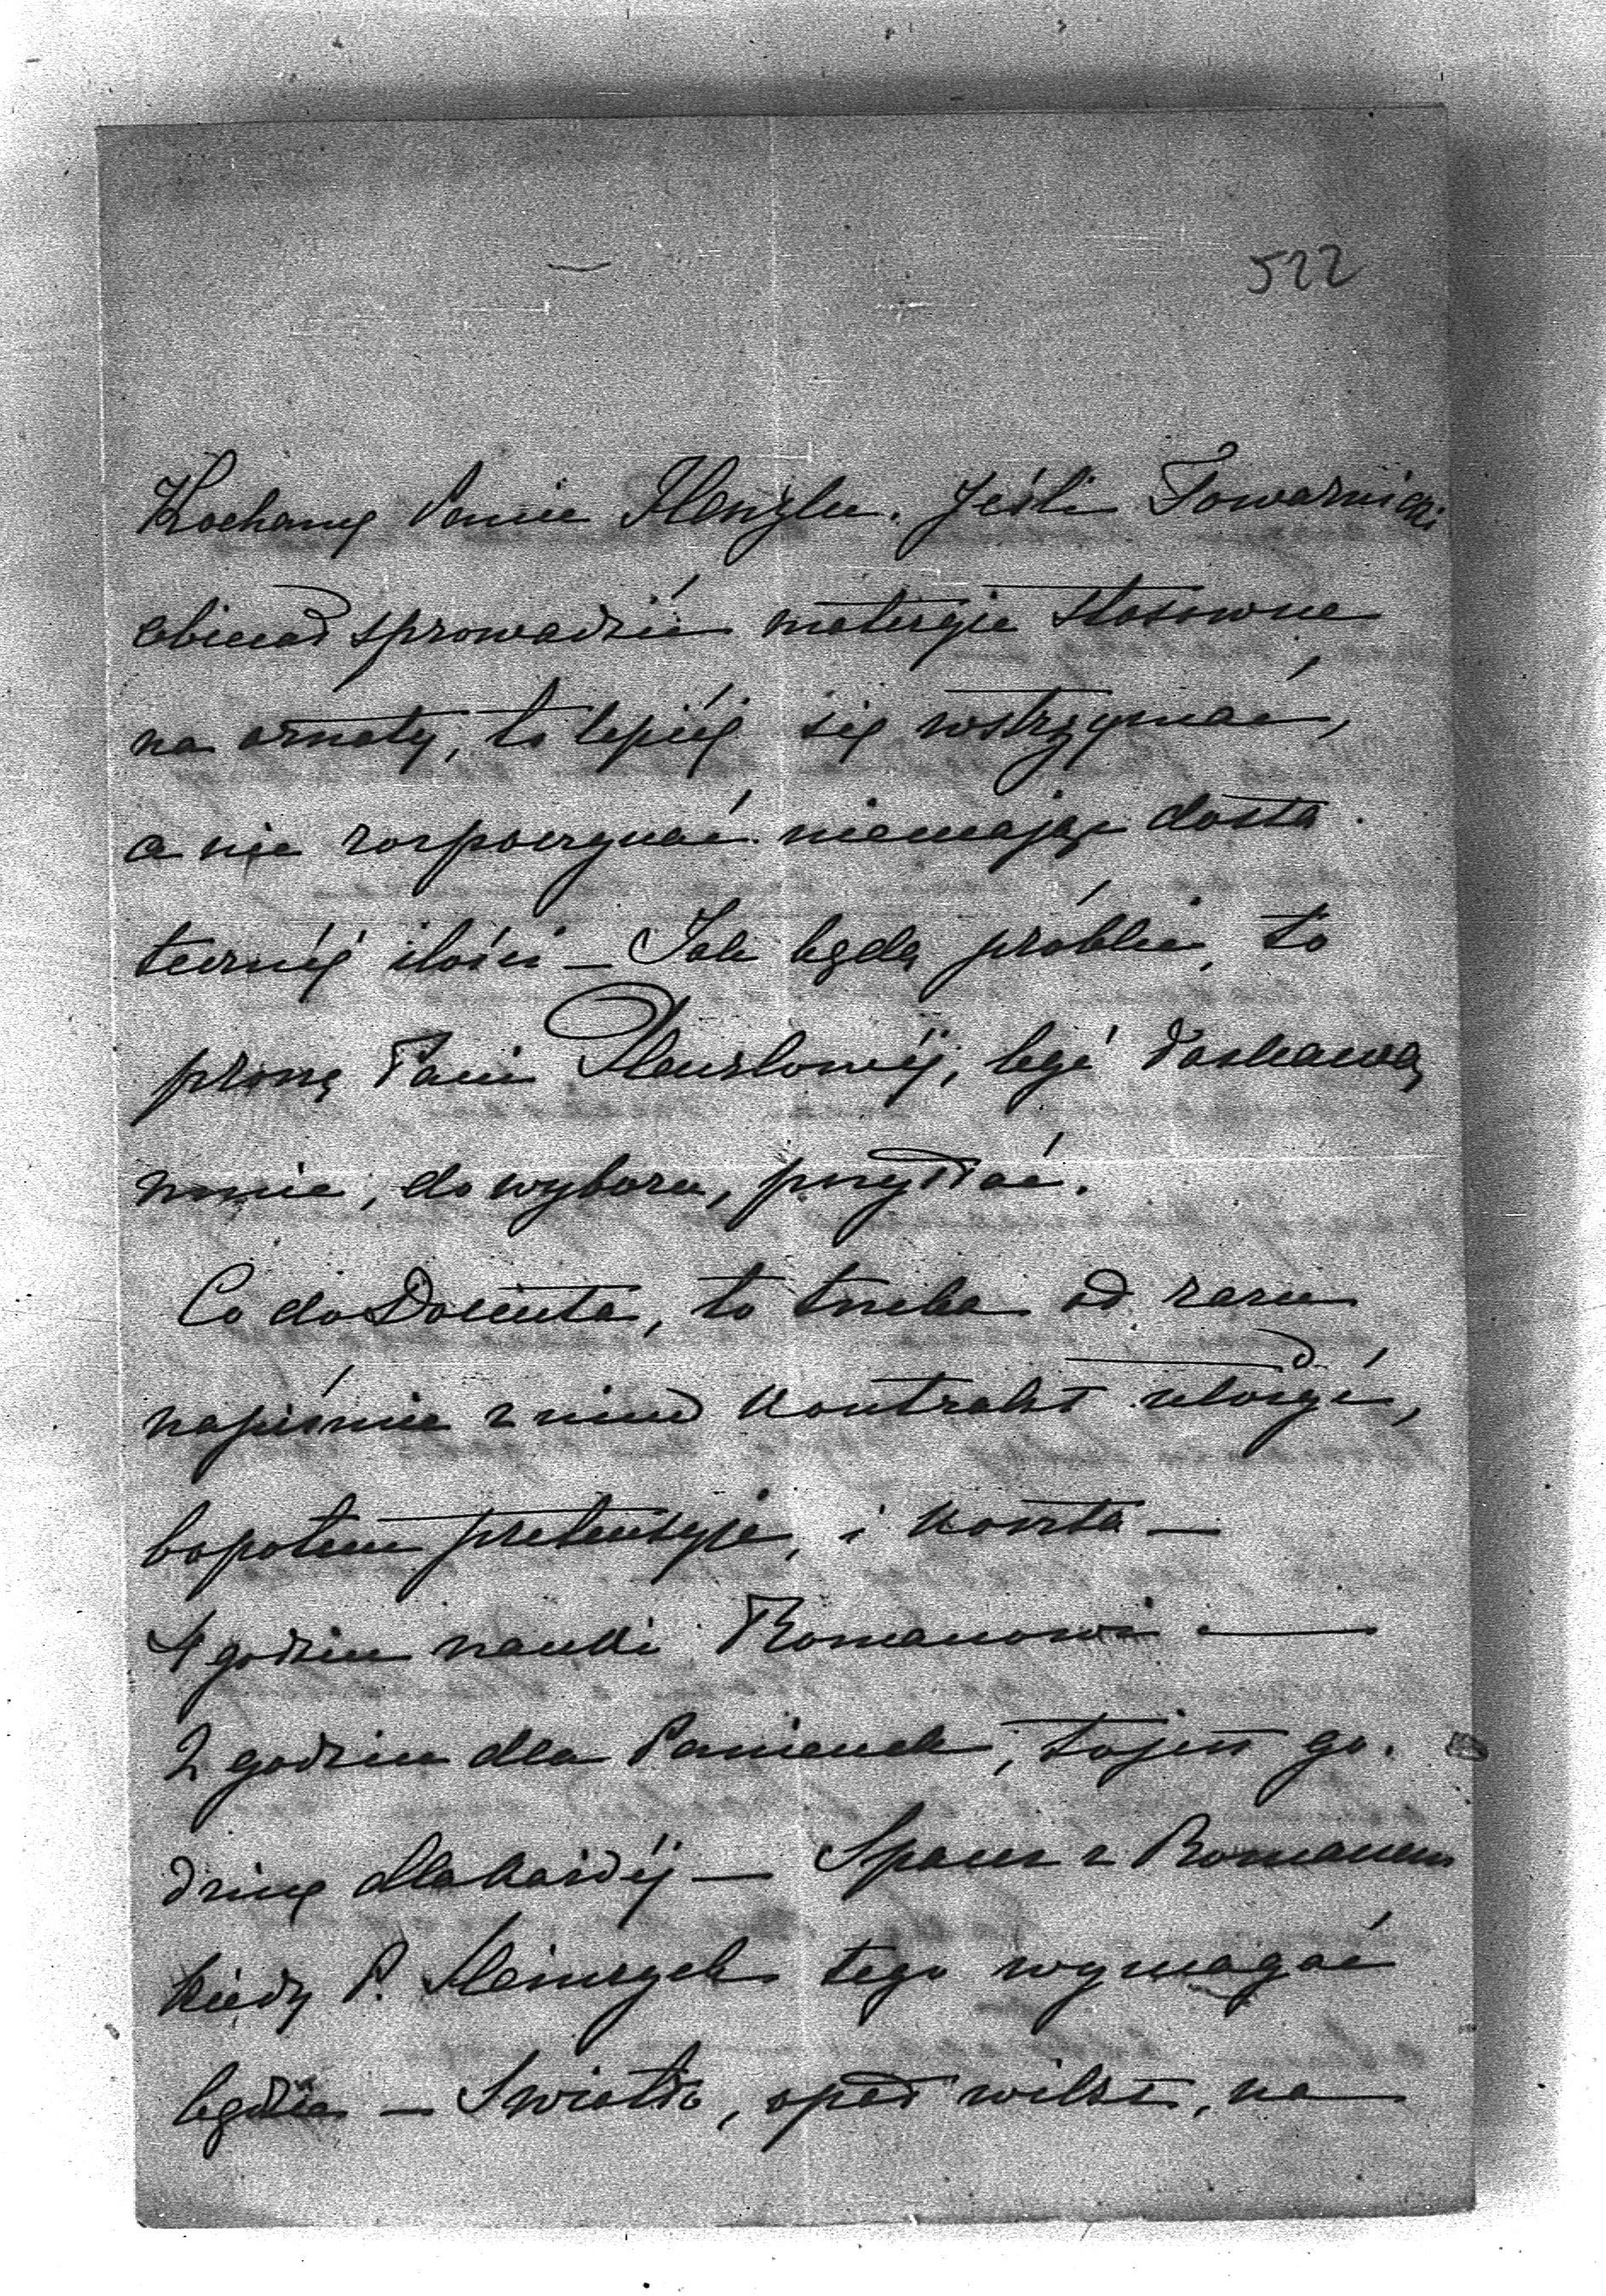 522
Kochany Panie Henzlu. Jeśli Towarnicki
obiecał sprowadzić materyje stosowne
na ornaty, to lepiéj się wstrzymać,
a nie rospoczynać niemając dosta
tecznéj ilości – Jak będą próbki, to
proszę Pani Henzlowéj, być łaskawą
mnie, do wyboru, przysłać.
Co do Docenta, to trzeba od razu
napiśmie z nim kontrakt ułożyć,
bo potem pretensyje, i koszta –
4 godzin nauki Romanowi —
2 godzin dla Panienek, to jest go.
dzinę dla każdéj – Spacer z Romanem
kiedy P. Henzyek tego wymagać
będzie – Swiatło, opał wikt, na